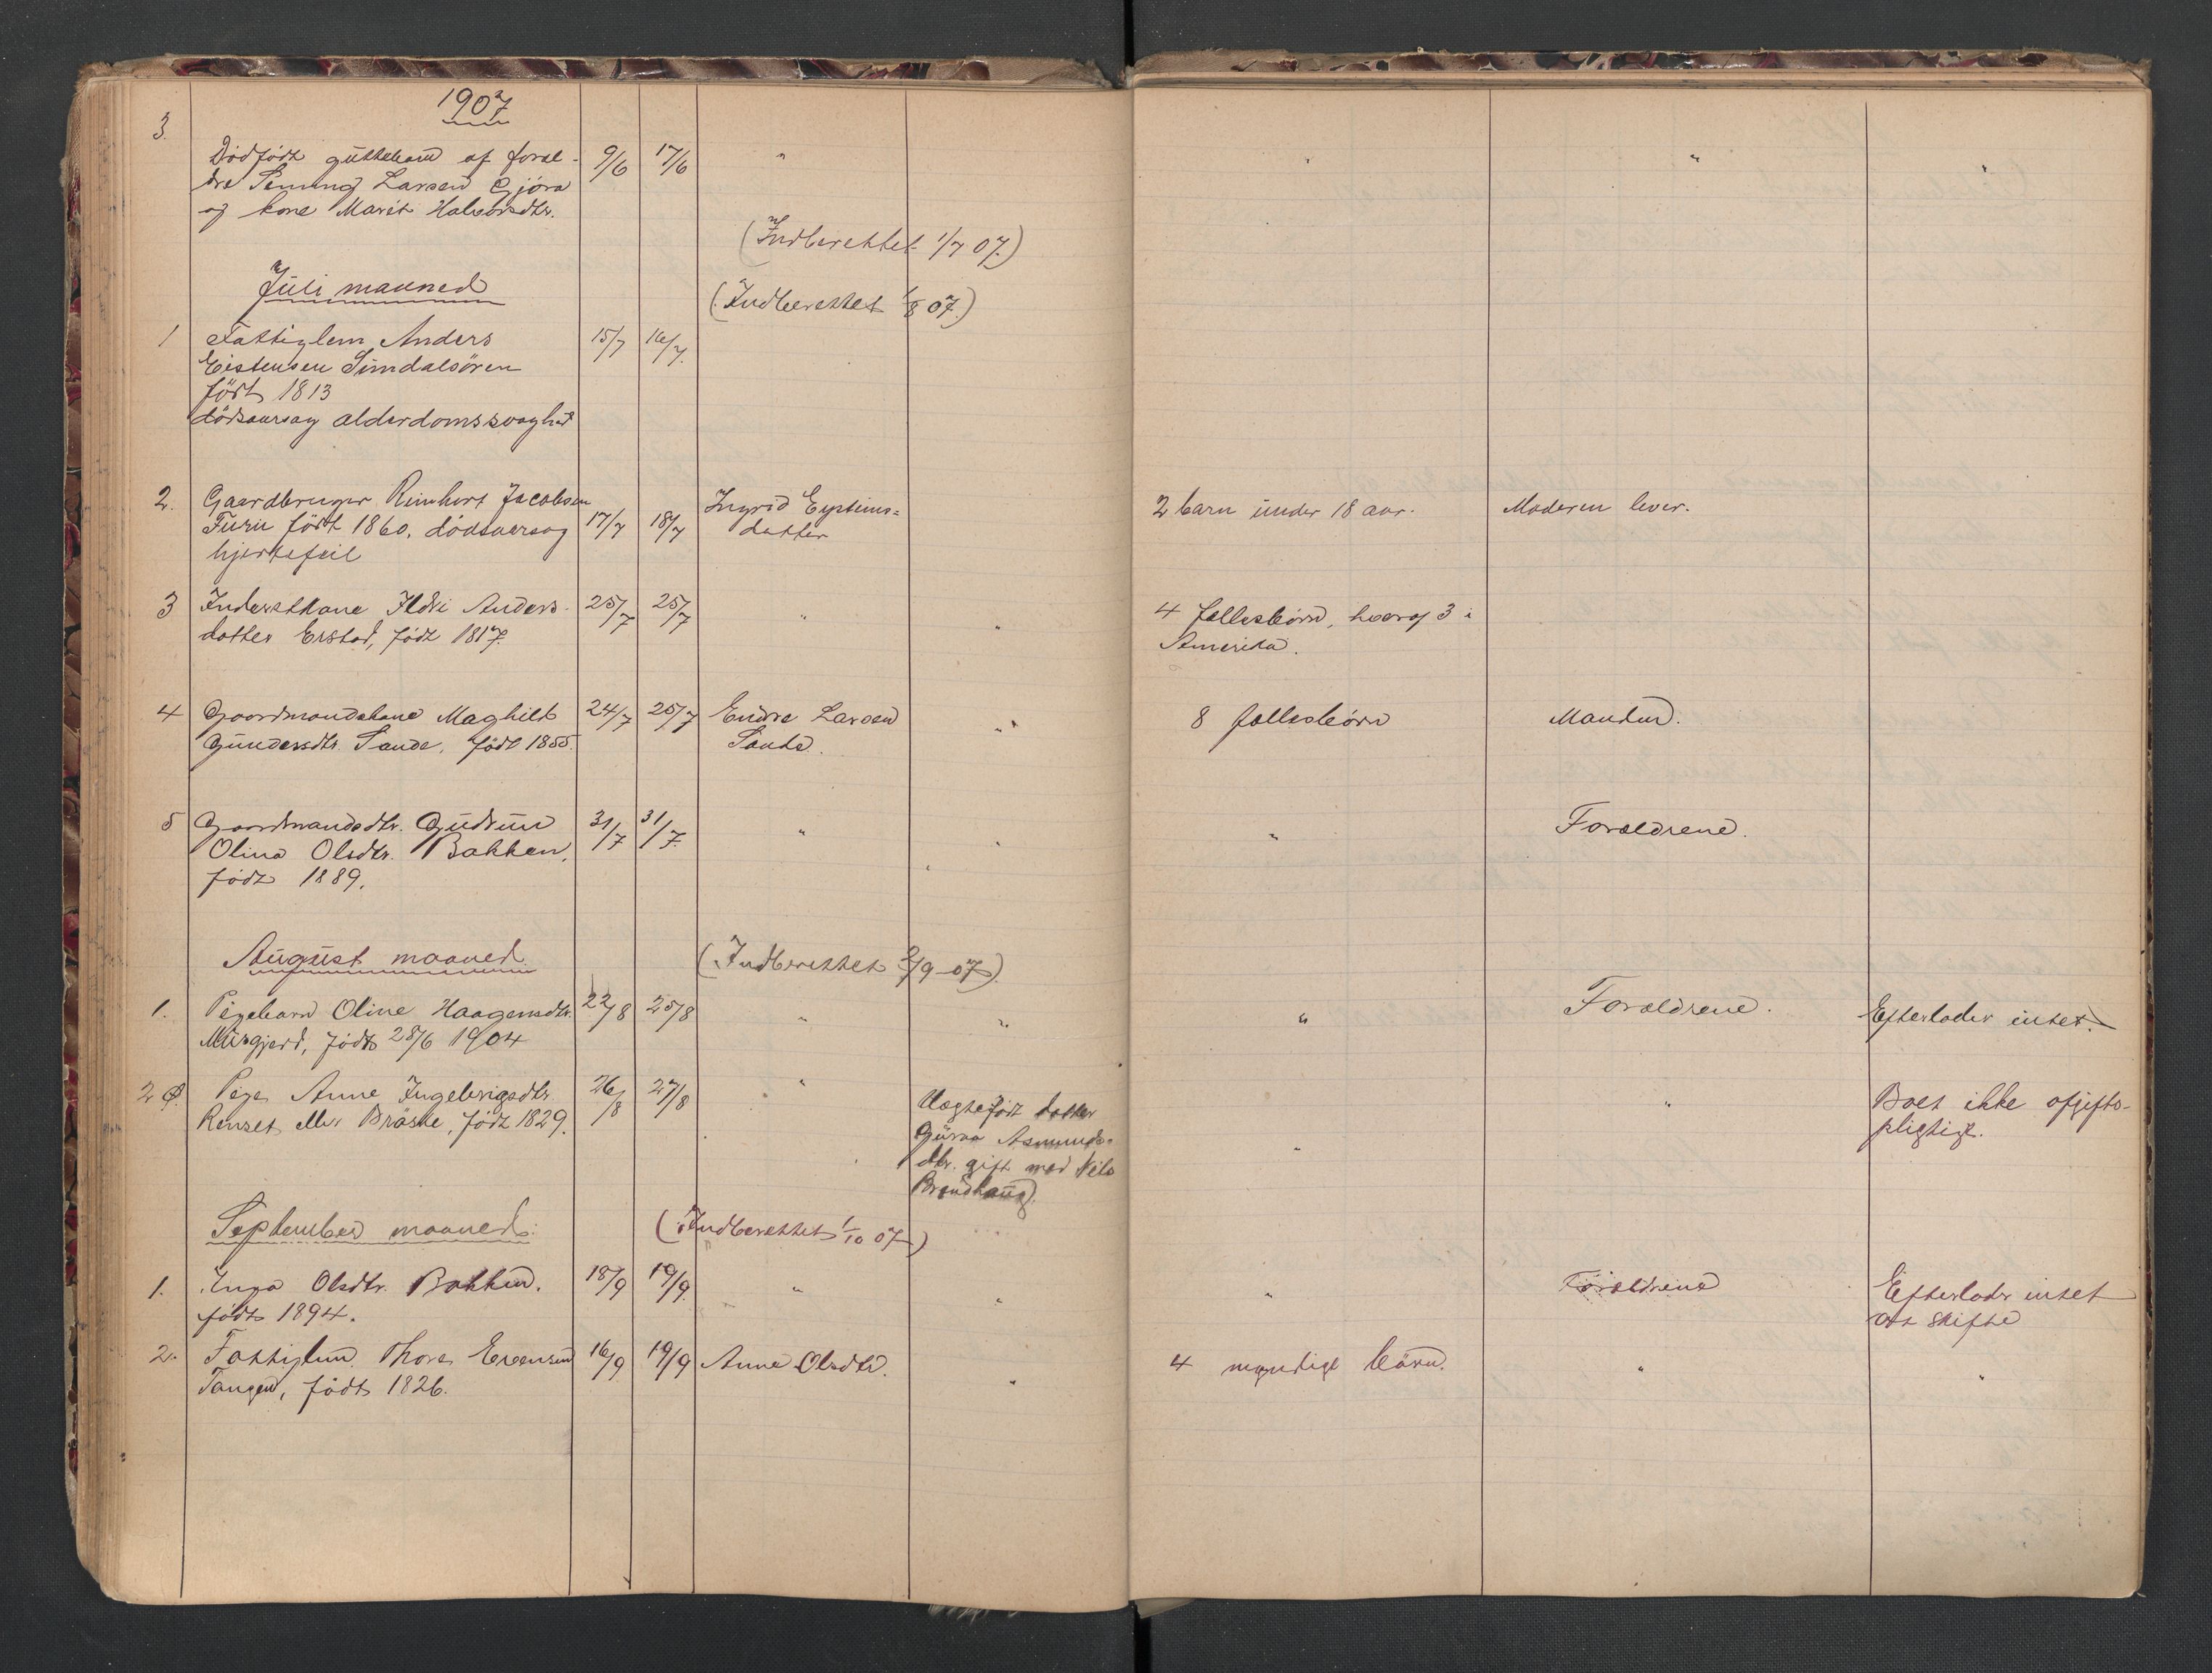 1907
3.
Dödfödt guttebarn af foræl-
dre Lars​en Gjöra
og kone Marit Halvorsdtr.
9/6 17/6 " " " "
(Indberettet 1/7 07.)
Juli maaned
(Indberettet 1/8 07.)
1 Fattiglem Anders 15/7 16/7.
Eistensen Sundalsören
födt 1813
dödsaarsag alderdomssvaghed
2. Gaardbruger Reinhart Jacobsen
Furu födt 1860, dödsaarsag 17/7 18/7
hjertefeil
Ingrid Eysteins=
datter
2 barn under 18 aar. Moderen lever.
3 Inderstkone Ildri Anders- 25/7 25/7 " "
datter Erstad, födt 1817.
4 fællesbörn, hvoraf 3 i
Amerika.
4 Gaardmandskone Maghild 24/7 25/7 Endre Larsen "
Gundersdtr. Sande, födt 1855. Sande.
8 fællesbörn Manden.
5 Gaardmandsdtr. Gudrun 31/7 31/7. " "
Olina Olsdtr. Bakken,
födt 1889.
" Forældrene.
August maaned.
(Indberettet 2/9-07)
1. Pigebarn Oline Haagensdtr. 22/8 25/8 " "
Musgjerd, födt 28/6 1904
" Forældrene. Efterlader intet.
2 Pige Anne Ingebrigtsdtr. 26/8 27/8 "
Renset eller Bräske, födt 1829.
Uægtefödt datter
Guroa Asmunds=
dtr. gift med Nils
Brandhaug.
" " Boet ikke afgifts-
pligtigt.
September maaned.
(Indberettet 1/10 07)
1. Inga Olsdtr. Bakken. 18/9 19/9. " "
födt 1894.
" Forældrene Efterlader intet
at skifte
2. Fattiglem Thore Ereensen 16/9 19/9 Anne Olsdtr. "
Tangen, födt 1826.
4 myndige börn. " "